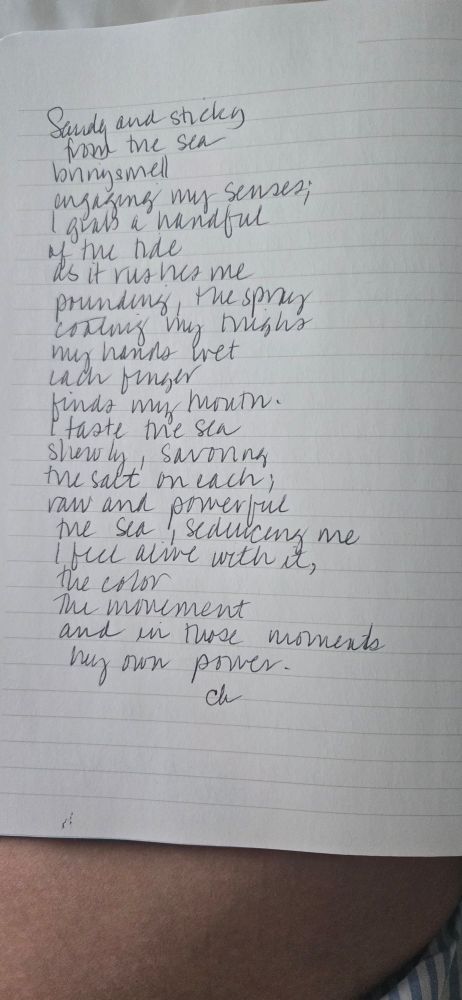 Sandy and sticky
from the sea
brinysmell
engaging my senses;
I grab a handful
of the tide
as it rushes me
pounding, the spray
coating my thighs
my hands wet
each finger
finds my mouth.
I taste the sea
slowly, savoring
the salt on each;
raw and powerful
the sea, seducing me
I feel alive with it,
the color
The movement
and in those moments
my own power.
ch